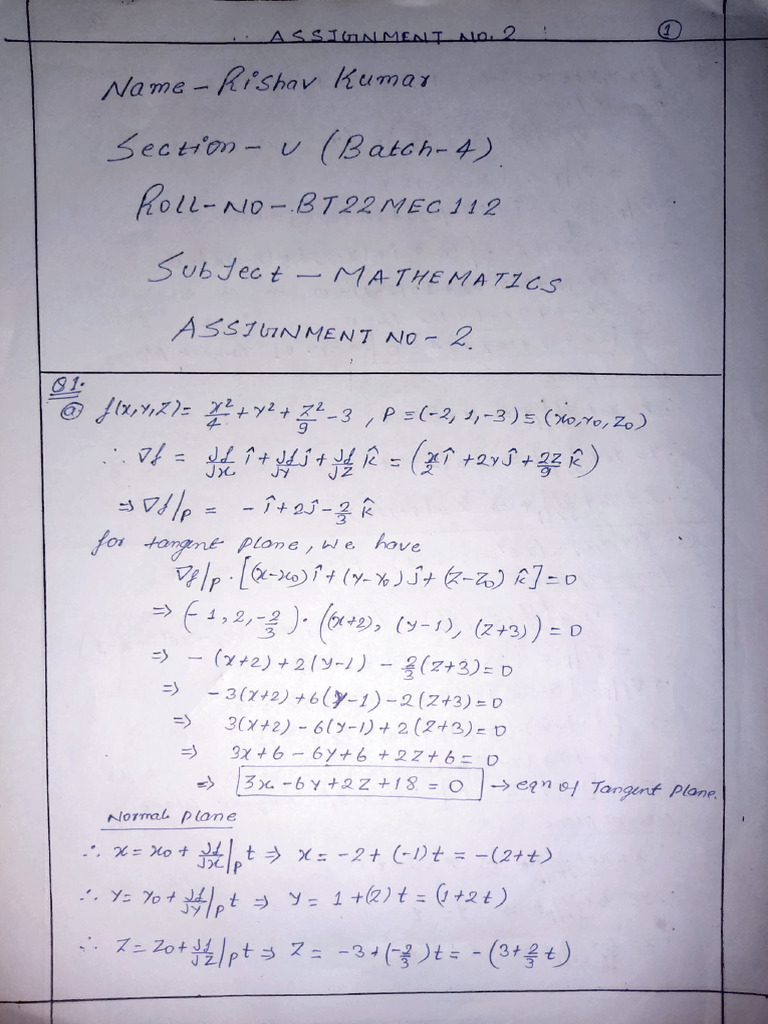 ASSIGNMENT NO. 2 ①
Name - Rishav Kumar
Section - U (Batch-4)
Roll-NO - BT22MEC112
Subject - MATHEMATICS
ASSIGNMENT NO - 2.
Q1.
ⓐ f(x,y,z) = x²/4 + y² + z²/9 - 3 , P ≡ (-2, 1, -3) ≡ (x₀, y₀, z₀)
∴ ∇f = ∂f/∂x î + ∂f/∂y ĵ + ∂f/∂z k̂ = (x/2 î + 2y ĵ + 2z/9 k̂)
⇒ ∇f|p = - î + 2ĵ - 2/3 k̂
for tangent plane, we have
∇f|p . [(x-x₀) î + (y-y₀) ĵ + (z-z₀) k̂] = 0
⇒ (-1, 2, -2/3) . ((x+2), (y-1), (z+3)) = 0
⇒ - (x+2) + 2(y-1) - 2/3 (z+3) = 0
⇒ -3(x+2) + 6(y-1) - 2(z+3) = 0
⇒ 3(x+2) - 6(y-1) + 2(z+3) = 0
⇒ 3x + 6 - 6y + 6 + 2z + 6 = 0
⇒ 3x - 6y + 2z + 18 = 0 → eqn of Tangent Plane.
Normal Plane
∴ x = x₀ + ∂f/∂x|p t ⇒ x = -2 + (-1)t = -(2+t)
∴ y = y₀ + ∂f/∂y|p t ⇒ y = 1 + (2)t = (1+2t)
∴ z = z₀ + ∂f/∂z|p t ⇒ z = -3 + (-2/3)t = -(3 + 2/3 t)